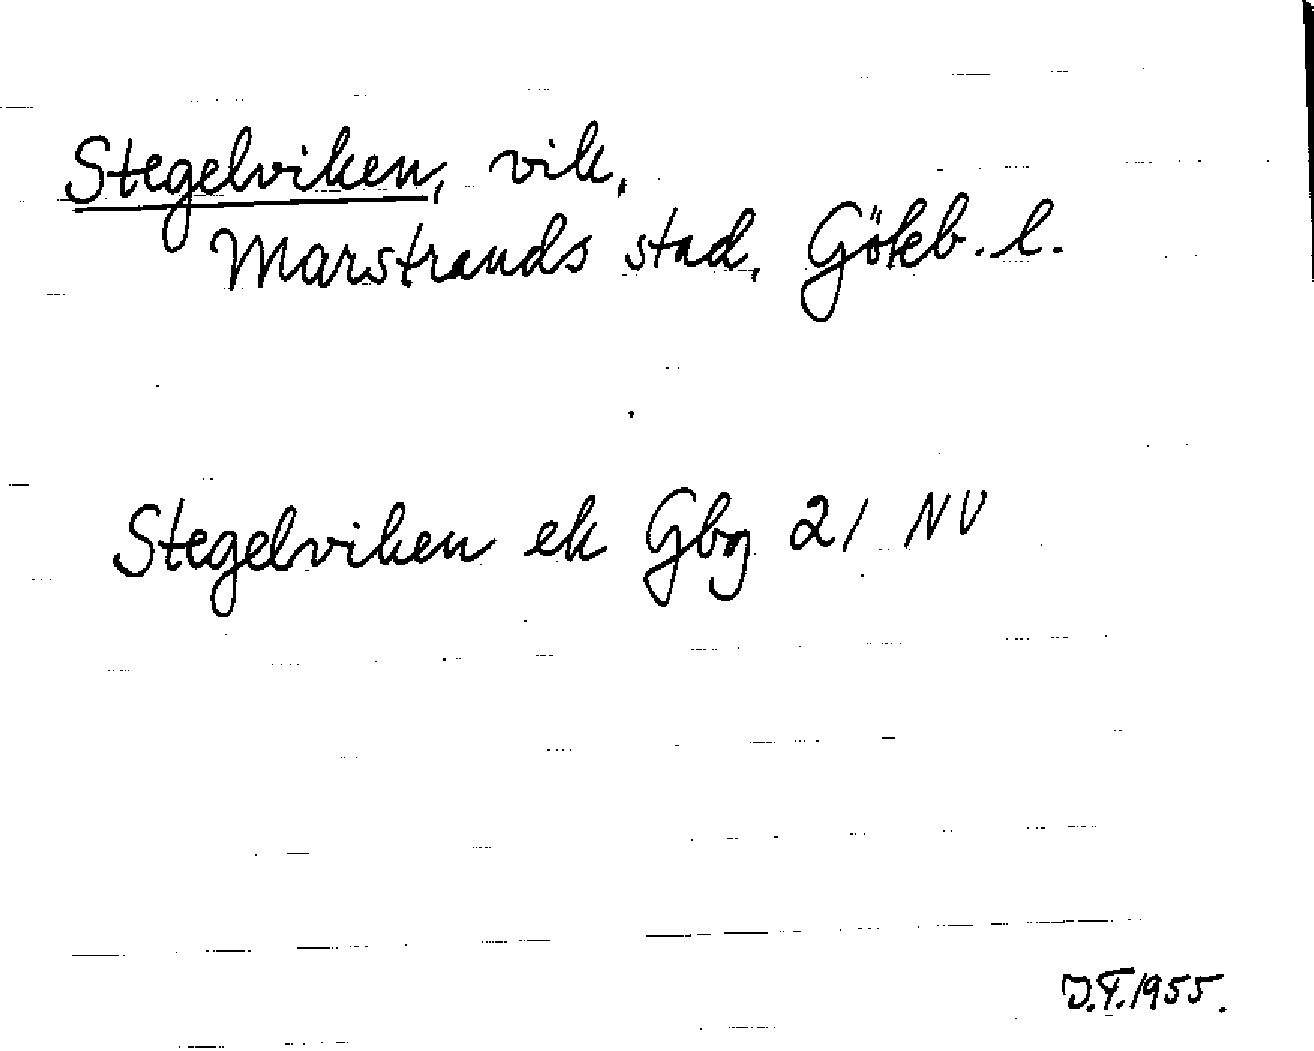 Stegelviken, vik,
Marstrands stad, Göteb. l.
Stegelviken ek Gbg 21 NV
J.F. 1955.